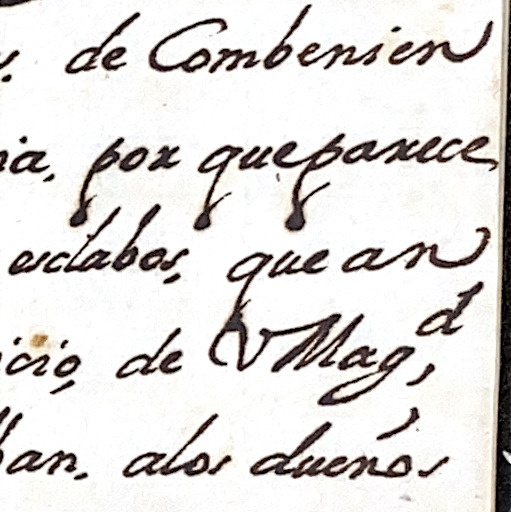 de Combenien
por que parece
esclabos, que an
de VMag,d
alos dueños